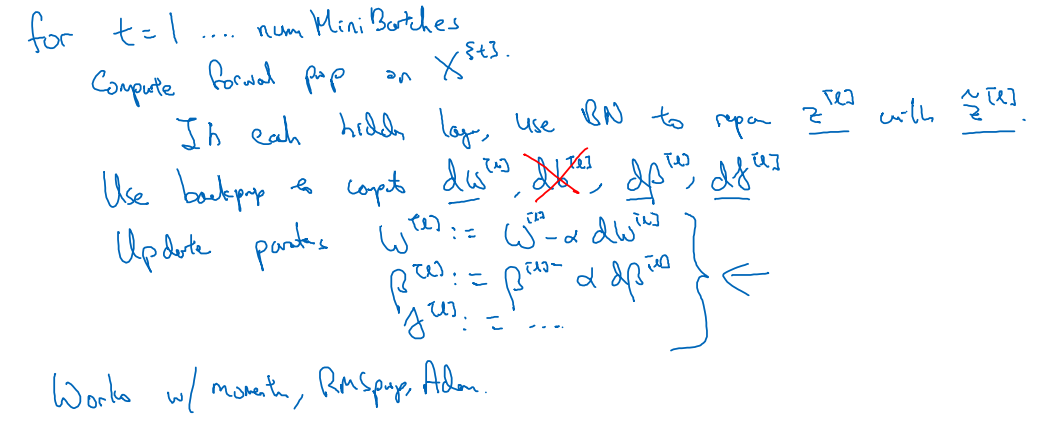 for t = 1 .... num Mini Batches
Compute forward prop on X^{t}.
In each hidden layer, use BN to repar z^[l] with z̃^[l].
Use backprop to compute dW^[l], db^[l], dβ^[l], dγ^[l]
Update params W^[l] := W^[l] - α dW^[l]
β^[l] := β^[l] - α dβ^[l]
γ^[l] := ...
Works w/ momentum, RMSprop, Adam.